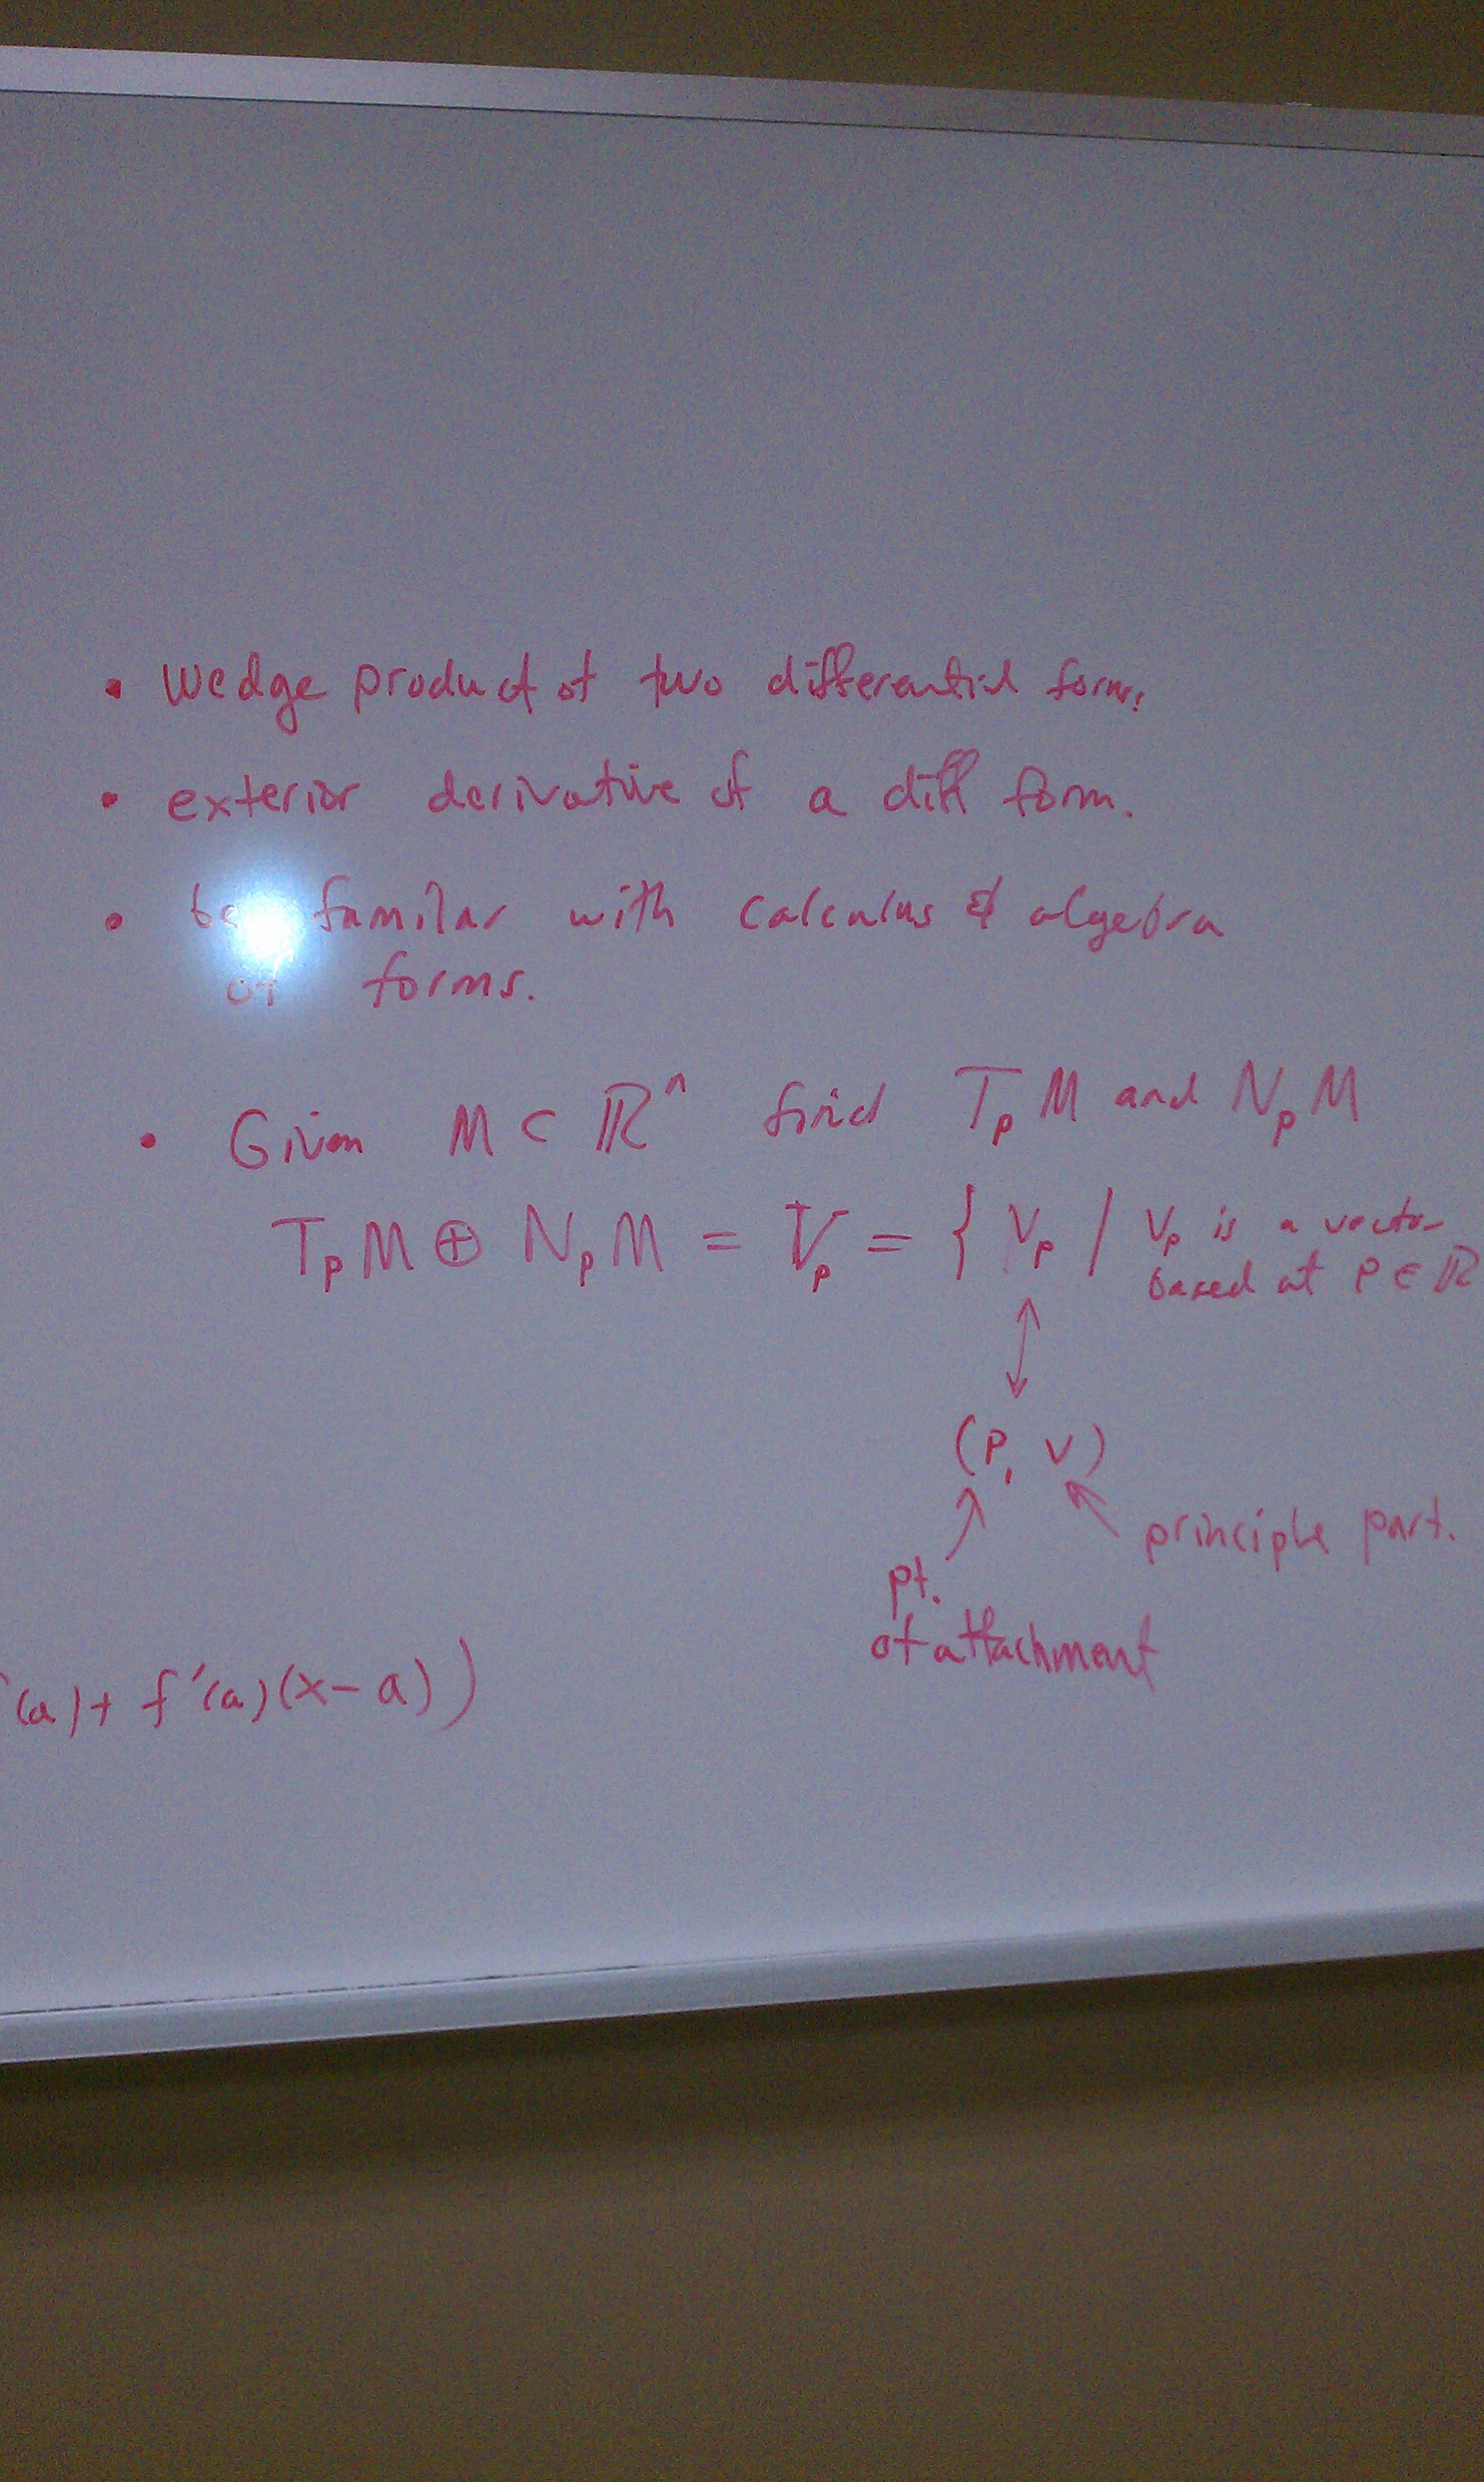 • Wedge product of two differential forms
• exterior derivative of a diff form.
• be familar with calculus & algebra
of forms.
• Given M ⊂ ℝⁿ find TₚM and NₚM
TₚM ⊕ NₚM = Vₚ = { Vₚ / Vₚ is a vector
based at P ∈ ℝ
(P, v)
principle part.
pt.
of attachment
(a) + f'(a)(x - a))